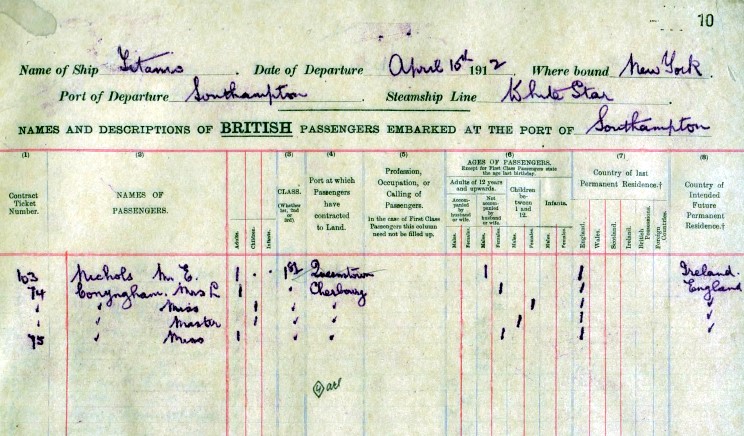 10
Name of Ship Titanic. Date of Departure April 10th 1912 Where bound New York.
Port of Departure Southampton Steamship Line White Star
NAMES AND DESCRIPTIONS OF BRITISH PASSENGERS EMBARKED AT THE PORT OF Southampton
(1) (2) (3) (4) (5) (6) (7) (8)
Contract Ticket Number.
NAMES OF PASSENGERS.
Adults. Children. Infants.
CLASS. (Whether 1st, 2nd or 3rd)
Port at which Passengers have contracted to Land.
Profession, Occupation, or Calling of Passengers.
in the case of First Class Passengers this column need not be filled up.
AGES OF PASSENGERS.
Except for First Class Passengers state the age last birthday.
Adults of 12 years and upwards.
Accompanied by husband or wife.
Not accompanied by husband or wife.
Children between 1 and 12.
Infants.
Males. Females. Males. Females. Males. Females. Males. Females.
Country of last Permanent Residence.†
England. Wales. Scotland. Ireland. British Possessions. Foreign Countries.
Country of Intended Future Permanent Residence.†
103 Nichols Mr. E. 1 . . 1st Queenstown 1 1 Ireland.
74 Conyngham. Mrs L 1 " Cherbourg 1 1 England
" " Miss 1 " " 1 1 "
" " Master 1 " " 1 1 "
75 " Miss 1 " " 1 1 "